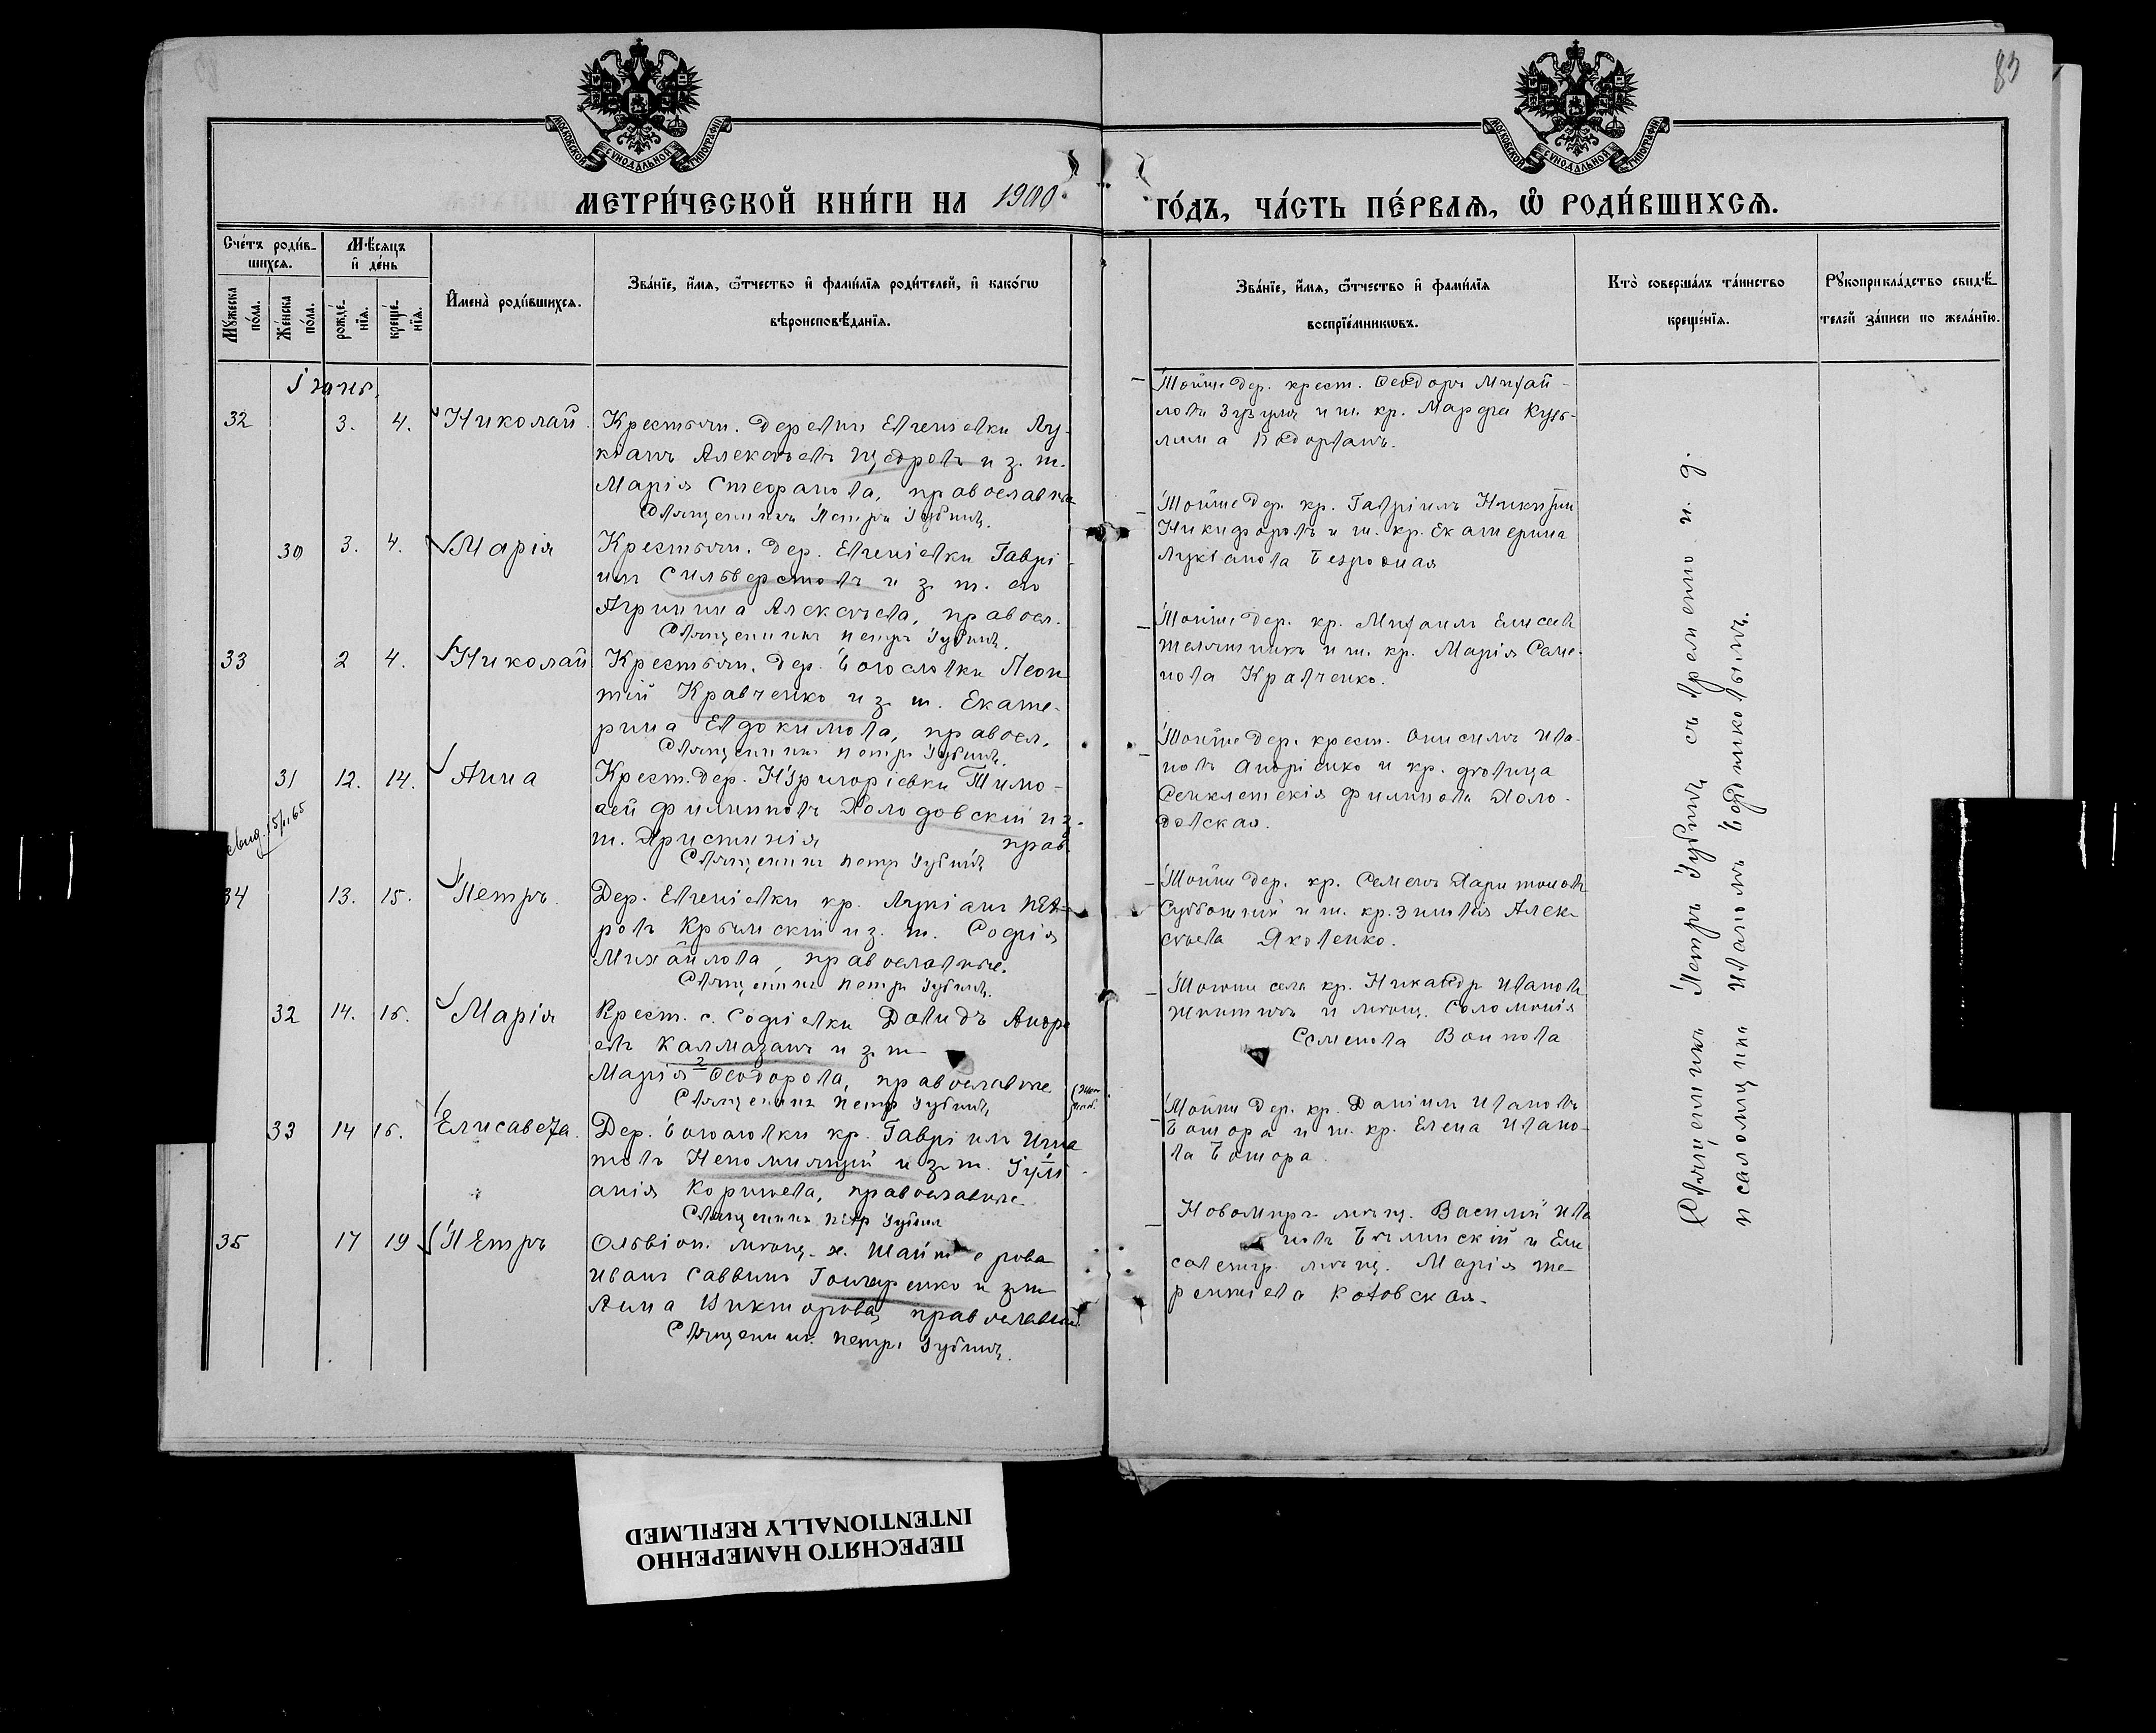 83
МОСКОВСКОЙ СѴНОДАЛЬНОЙ ТИПОГРАФІИ
МОСКОВСКОЙ СѴНОДАЛЬНОЙ ТИПОГРАФІИ
МЕТРИ́ЧЕСКОЙ КНИ́ГИ НА 1900 ГО́ДЪ, ЧА́СТЬ ПЕ́РВАѦ, Ѡ҆ РОДИ́ВШИХСѦ.
Сче́тъ роди́в-
шихсѧ.
Мѣ́сѧцъ
и҆ де́нь
Мꙋ́жеска
по́ла.
Же́нска
по́ла.
рожде́-
нїѧ.
креще́-
нїѧ.
И҆мена̀ роди́вшихсѧ.
Зва́нїе, и҆́мѧ, ѻ҆́тчество и҆ фами́лїѧ роди́телей, и҆ како́гѡ
вѣроисповѣ́данїѧ.
Зва́нїе, и҆́мѧ, ѻ҆́тчество и҆ фами́лїѧ
воспрїе́мникѡвъ.
Кто̀ соверша́лъ та́инство
креще́нїѧ.
Рꙋкоприкла́дство свидѣ́-
телей за́писи по жела́нїю.
Іюнь.
32 3. 4. Николай
Крестьян. деревни Евгеніевки Лу-
кіанъ Алексѣевъ Щедровъ и з. ж.
Марія Стефанова, православные
Священникъ Петръ Губинъ.
Тойже дер. крест. Ѳеодоръ Михай-
ловъ Зузуля и ж. кр. Марфа Кузь-
мина
30 3. 4. Марія
Крестьян. дер. Евгеніевки Гаврі-
илъ Сильверстовъ и з. ж. его
Агрипина Алексѣева, правосл.
Священникъ Петръ Губинъ.
Тойже дер. кр. Гавріилъ Никитинъ
Никифоровъ и ж. кр. Екатерина
Лукіанова Безродная
33 2 4. Николай
Крестьян. дер. Богословки Леон-
тій Кравченко и з. ж. Екате-
рина Евдокимова, правосл.
Священникъ Петръ Губинъ.
Тойже дер. кр. Михаилъ Елисѣевъ
Телятникъ и ж. кр. Марія Семе-
нова Кравченко.
31 12. 14. Анна
Крест. дер. Н-Григоріевки Тимо-
ѳей Филиповъ Холодовскій и з.
ж. Христинія прав.
Священникъ Петръ Губинъ
Тойже дер. крест. Онисимъ Ива-
новъ Андріенко и кр. дѣвица
Сенклетекія Филипова Холо-
довская.
34 13. 15. Петръ.
Дер. Евгеніевки кр. Лукіанъ Пет-
ровъ Крымскій и з. ж. Софія
Михайлова, православные.
Священникъ Петръ Губинъ.
Тойже дер. кр. Семенъ Харитоновъ
Субботній и ж. кр. Зиновія Алек-
сѣева Яковенко.
32 14. 16. Марія
Крест. с. Софіевки Давидъ Андре-
евъ Калмазанъ и з. ж
Марія 2 Ѳеодорова, православные
Священникъ Петръ Губинъ,
Тогоже села кр. Никандръ Ивановъ
Житникъ и мѣщ. Соломонія
Семенова Воинова
33 14 16. Елисавета.
Дер. Богословки кр. Гавріилъ Игна-
товъ Непомнящій и з. ж. Іулі-
анія Корнѣева, православные
Священникъ Петръ Губинъ
Тойже дер. кр. Даніилъ Ивановъ
Ботора и ж. кр. Елена Ивано-
ва Ботора
35 17 19 Петръ
Ольвіоп. мѣщ. х.
Иванъ Саввинъ Гончаренко и з. ж
Анна Викторова, православные
Священникъ Петръ Губинъ.
Новомирг. мѣщ. Василій Ива-
новъ Бѣлинскій и Ели-
саветгр. мѣщ. Марія Те-
рентіева Котовская.
Священникъ Петръ Губинъ съ временно и. д.
псаломщика Иваномъ Бодниковымъ.
ПЕРЕСНЯТО НАМЕРЕННО
INTENTIONALLY REFILMED